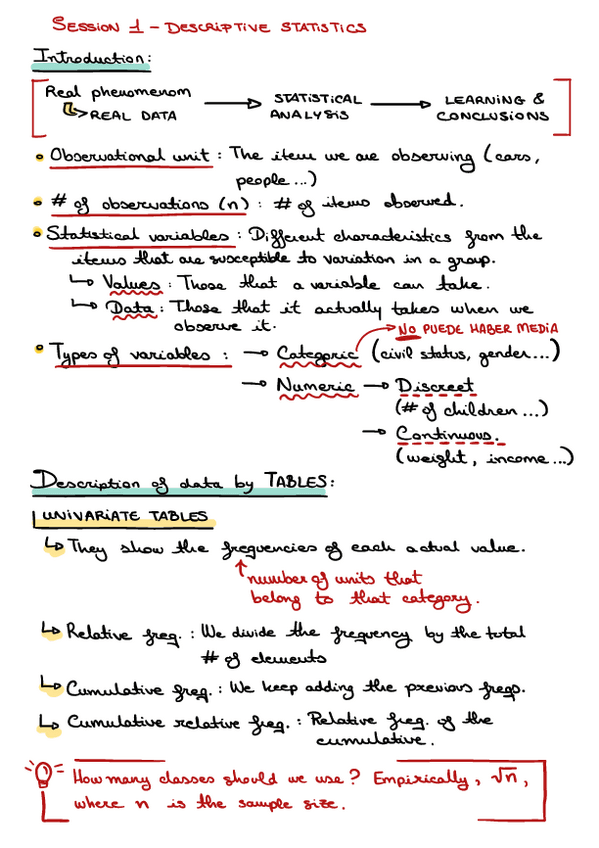 SESSION 1 - DESCRIPTIVE STATISTICS
Introduction:
Real phenomenom
REAL DATA
STATISTICAL
ANALYSIS
LEARNING &
CONCLUSIONS
Observational unit : The item we are observing (cars,
people...)
# of observations (n) : # of items observed.
Statistical variables : Different characteristics from the
items that are susceptible to variation in a group.
Values : Those that a variable can take.
Data : Those that it actually takes when we
observe it.
NO PUEDE HABER MEDIA
Types of variables : → Categoric (civil status, gender...)
→ Numeric → Discreet
(# of children ...)
→ Continuous.
(weight, income...)
Description of data by TABLES:
UNIVARIATE TABLES
They show the frequencies of each actual value.
number of units that
belong to that category.
Relative freq. : We divide the frequency by the total
# of elements
Cumulative freq. : We keep adding the previous freqs.
Cumulative relative freq. : Relative freq. of the
cumulative.
How many classes should we use? Empirically, √n,
where n is the sample size.